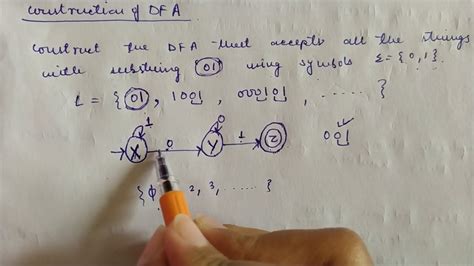 Construction of DFA
Construct the DFA that accepts all the strings
with substring 01 using symbols Σ = {0,1}.
L = {01, 1001, ..... }
1 0 0 1
X Y 2 001
{ϕ 2, 3, ..... }